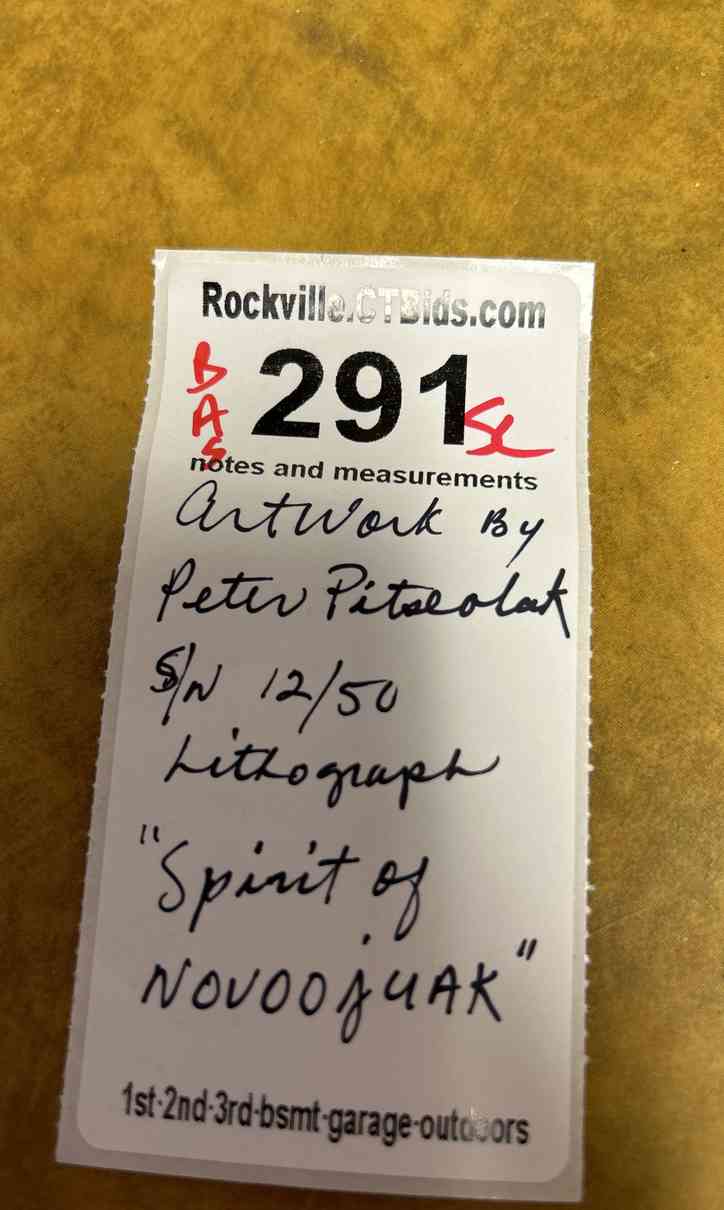 Rockville.CTBids.com
BAS 291 SL
notes and measurements
ArtWork By
Peter Pitseolak
S/N 12/50
Lithograph
"Spirit of
NOVOOjUAK"
1st-2nd-3rd-bsmt-garage-outdoors